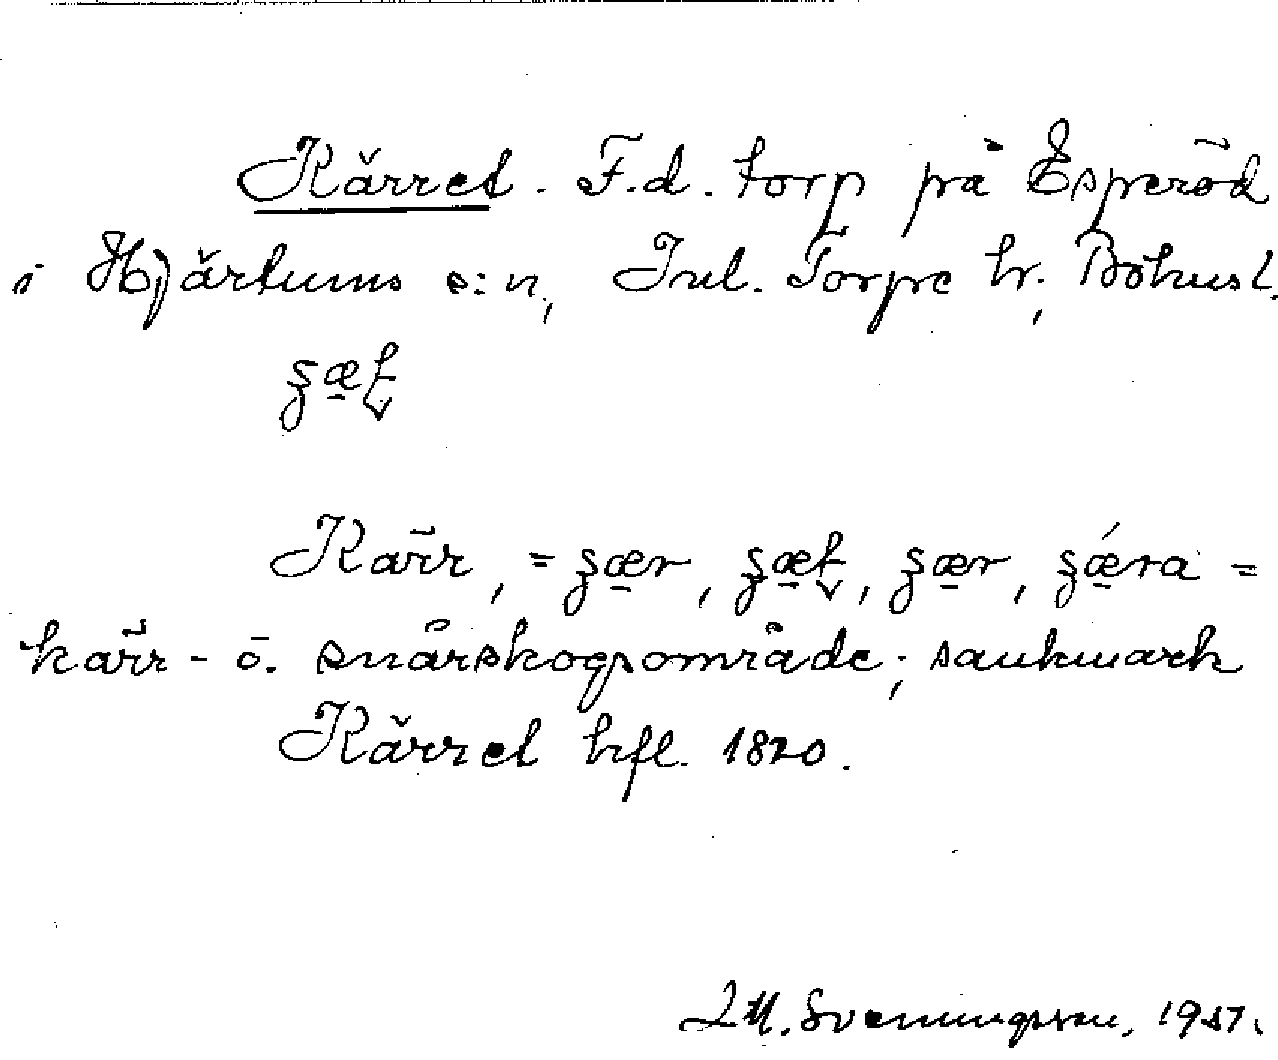 Kärret. F.d. torp på Esperöd
i Hjärtums s:n, Inl. Torpe hr, Bohusl.
Kärr,
kärr- o. snårskogsområde; sankmark
Kärret hfl. 1820.
Sveningsson, 1957.